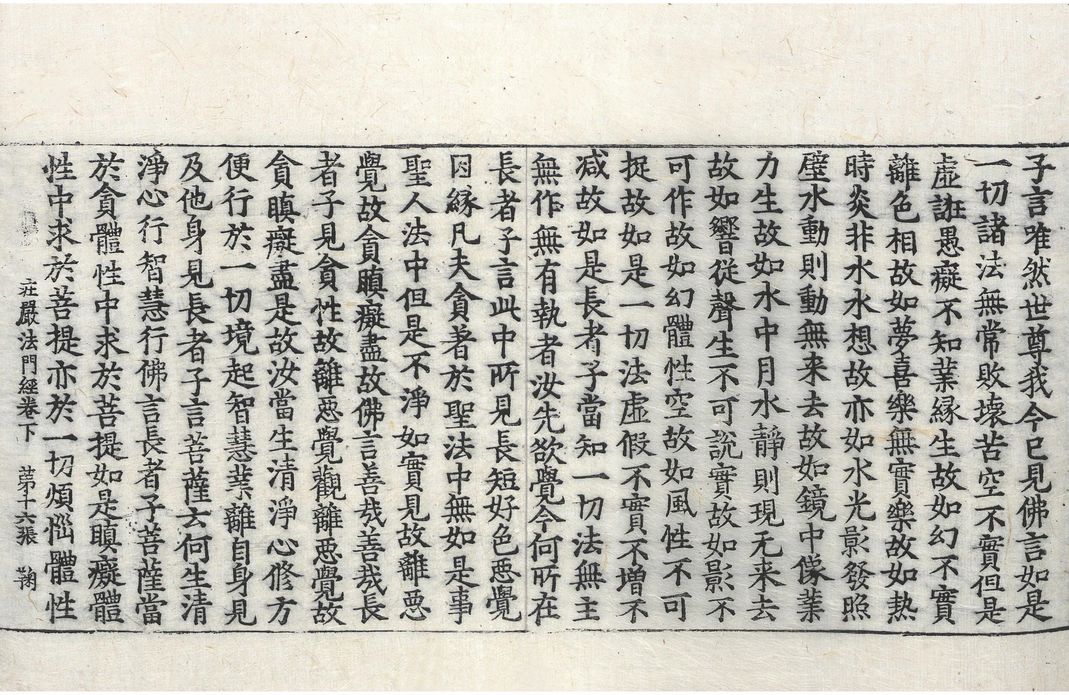 子言唯然世尊我今已見佛言如是
一切諸法無常敗壞苦空不實但是
虛誑愚癡不知業緣生故如幻不實
離色相故如夢喜樂無實樂故如熱
時炎非水水想故亦如水光影發照
壁水動則動無来去故如鏡中像業
力生故如水中月水靜則現无来去
故如響從聲生不可說實故如影不
可作故如幻體性空故如風性不可
捉故如是一切法虛假不實不增不
减故如是長者子當知一切法無主
無作無有執者汝先欲覺今何所在
長者子言此中所見長短好色惡覺
因緣凡夫貪著於聖法中無如是事
聖人法中但是不淨如實見故離惡
覺故貪瞋癡盡故佛言善哉善哉長
者子見貪性故離惡覺觀離惡覺故
貪瞋癡盡是故汝當生清淨心修方
便行於一切境起智慧業離自身見
及他身見長者子言菩薩云何生清
淨心行智慧行佛言長者子菩薩當
於貪體性中求於菩提如是瞋癡體
性中求於菩提亦於一切煩惱體性
庄嚴法門經卷下 苐十六張 鞠